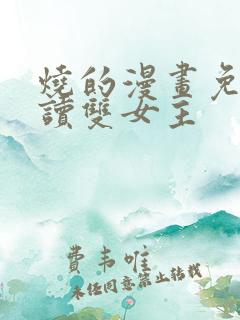 燒的漫畫免
讀雙女主
費韦唯
未经同意禁止转载